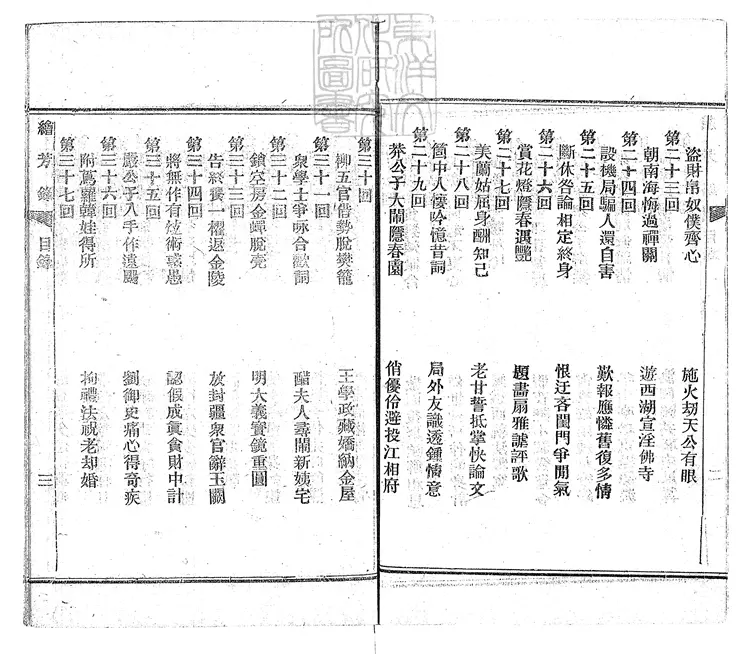 盜財帛奴僕齊心　施火劫天公有眼
第二十三回
朝南海悔過禪關　遊西湖宣淫佛寺
第二十四回
設機局騙人還自害　歎報應憐舊復多情
第二十五回
斷休咎論相定終身　恨迂吝閨門爭閒氣
第二十六回
賞花燈隱春遇艷　題畵扇雅謔評歌
第二十七回
美蘭姑屈身酬知己　老甘誓抵掌快論文
第二十八回
箇中人懷吟憶昔詞　局外友識透鍾情意
第二十九回
莽公子大鬧隱春園　俏優伶避投江相府
第三十回
柳五官借勢脫樊籠　王學政藏嬌納金屋
第三十一回
衆學士爭咏合歡詞　醋夫人尋鬧新姨宅
第三十二回
鎖空房金蟬脫壳　明大義寶鏡重圓
第三十三回
告終養一櫂返金陵　放封疆衆官辭玉闕
第三十四回
將無作有炫術惑愚　認假成眞貪財中計
第三十五回
嚴公子入手作遺　劉御史痛心得奇疾
第三十六回
附蔦蘿韓娃得所　拘禮法祝老却婚
第三十七回
繪芳錄　目錄　三
東洋文化研究所圖書